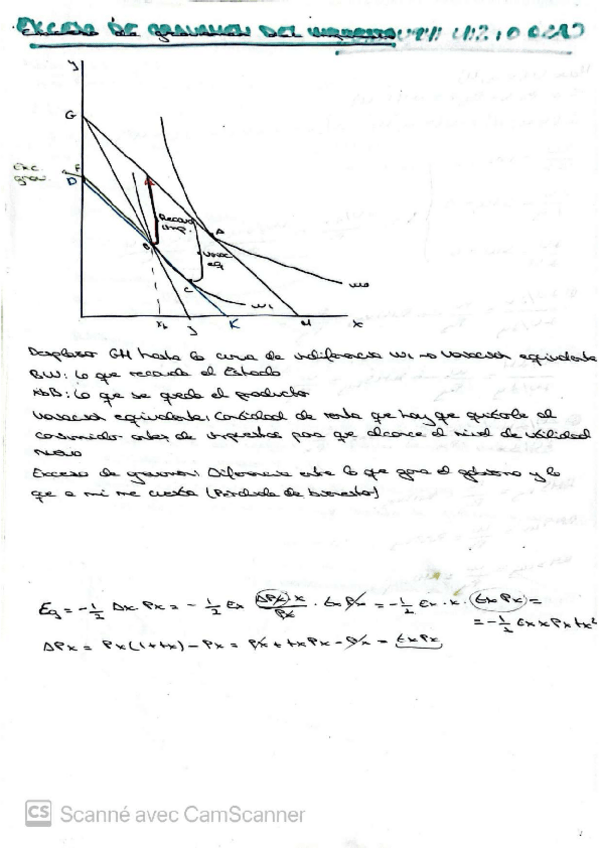 EXCESO DE GRAVAMEN DEL IMPUESTO
y
G
Exc. grav.
F
D
Recaud imp.
A
B
Variac eq
C
w0
w1
xb J K H x
Desplazar GH hasta la curva de indiferencia w1 → variación equivalente
BW: lo que recauda el Estado
XbB: lo que se queda el productor
Variación equivalente: Cantidad de renta que hay que quitarle al
consumidor antes de impuestos para que alcance el nivel de utilidad
nuevo
Exceso de gravamen: Diferencia entre lo que gana el gobierno y lo
que a mi me cuesta (Pérdida de bienestar)
Eg = -1/2 Δx · Px = - 1/2 Ex (ΔPx) x / Px · tx Px = - 1/2 Ex · x · (tx Px) =
= -1/2 Ex x Px tx²
ΔPx = Px (1+tx) - Px = Px + tx Px - Px = tx Px
CS Scanné avec CamScanner